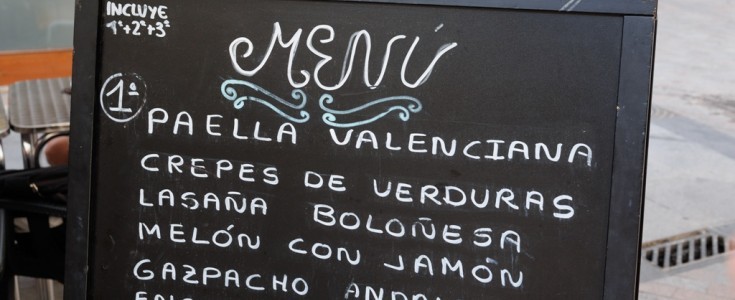 INCLUYE
1º+2º+3º
MENÚ
1º
PAELLA VALENCIANA
CREPES DE VERDURAS
LASAÑA BOLOÑESA
MELÓN CON JAMÓN
GAZPACHO